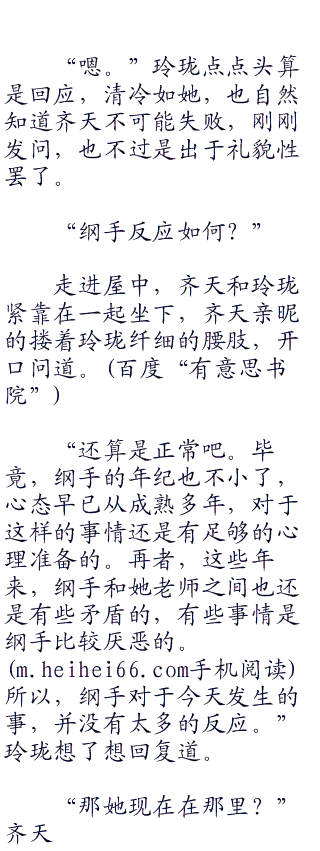 “嗯。”玲珑点点头算
是回应，清冷如她，也自然
知道齐天不可能失败，刚刚
发问，也不过是出于礼貌性
罢了。
“纲手反应如何？”
走进屋中，齐天和玲珑
紧靠在一起坐下，齐天亲昵
的搂着玲珑纤细的腰肢，开
口问道。(百度“有意思书
院”)
“还算是正常吧。毕
竟，纲手的年纪也不小了，
心态早已从成熟多年，对于
这样的事情还是有足够的心
理准备的。再者，这些年
来，纲手和她老师之间也还
是有些矛盾的，有些事情是
纲手比较厌恶的。
(m.heihei66.com手机阅读)
所以，纲手对于今天发生的
事，并没有太多的反应。”
玲珑想了想回复道。
“那她现在在那里？”
齐天